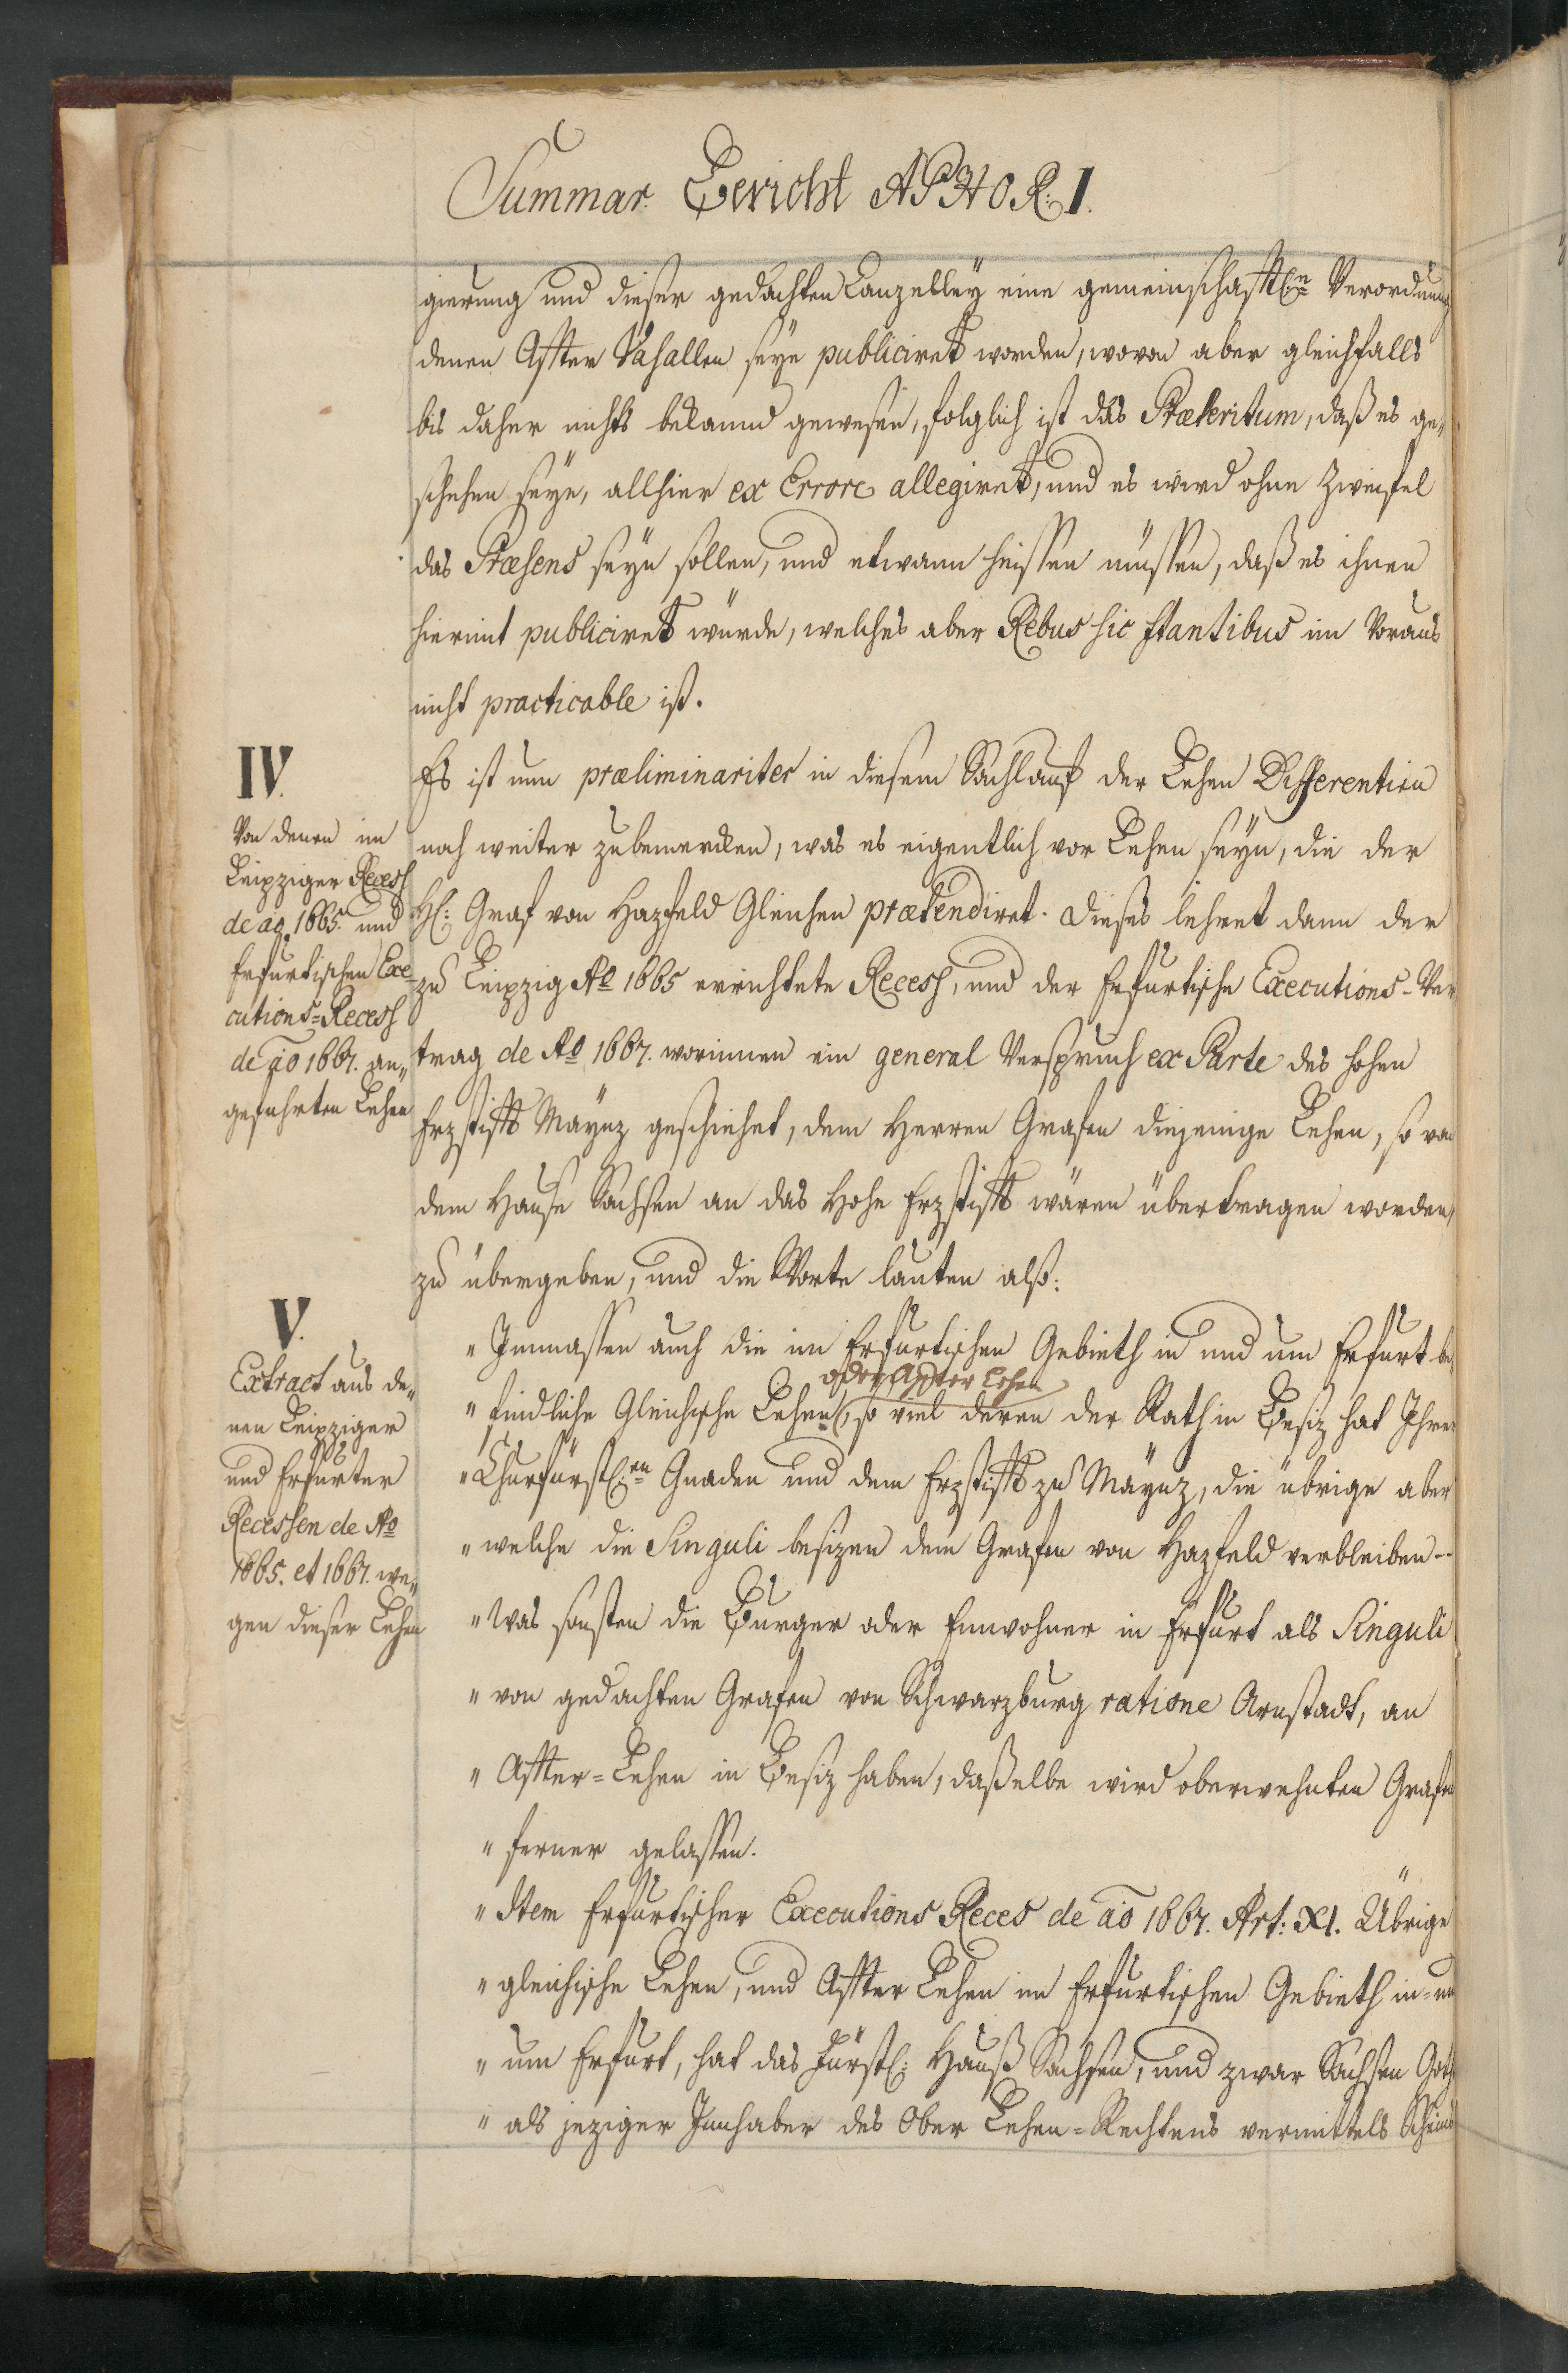 Summar. Bericht APHOR: I.
gierung und dieser gedachten Canzelley eine gemeinschafftl:n Verordnung
denen Affter Vasallen seye publiciret worden, wovon aber gleichfalls
bis daher nichts bekannd gewesen, folglich ist das Præteritum, daß es ge„
schehen seye, allhier ex Errore allegiret, und es wird ohne Zweifel
das Præsens seyn sollen, und etwann heissen müssen, daß es ihnen
hiermit publiciret würde, welches aber Rebus sic stantibus im Voraus
nicht practicable ist.
IV.
Von denen im
Leipziger Recess
de ao. 1665. und
Erfurtischen Exe-
cutions-Recess
de ao 1667. an„
geführten Lehen
Es ist nun præliminariter in diesem Sachlauf der Lehen Differentien
noch weiter zubemercken, was es eigentlich vor Lehen seyn, die der
H: Graf von Hazfeld Gleichen prætendiret. Dieses lehret dann der
zu Leipzig Ao 1665 errichtete Recess, und der Erfurtische Executions-Ver
trag de Ao 1667. worinnen ein general Verspruch ex Parte des hohen
Erzstiffts Maynz geschiehet, dem Herren Grafen diejenige Lehen, so von
dem Hause Sachsen an das Hohe Erzstifft wären übertragen worden,
zu übergeben, und die Worte lauten alß:
V.
Extract aus de„
nen Leipziger
und Erfurter
Recessen de Ao
1665. et 1667. we„
gen dieser Lehen
„Immassen auch die im Erfurtischen Gebieth in und um Erfurt be„
oder Affter Lehen
„findliche Gleichische Lehen, so viel deren der Rath in Besiz hat Ihrer
„Churfürstl:en Gnaden und dem Erzstifft zu Maynz, die übrige aber
„welche die Singuli besizen dem Grafen von Hazfeld verbleiben--
„Was sonsten die Burger oder Einwohner in Erfurt als Singuli
„von gedachten Grafen von Schwarzburg ratione Arnstadt, an
„Affter-Lehen in Besiz haben, daßelbe wird oberwehnten Grafen
„ferner gelassen.
„Item Erfurtischer Executions Reces de ao 1667. Art: XI. Übrige
„gleichische Lehen, und Affter Lehen im Erfurtischen Gebieth in-un
„um Erfurt, hat das Fürstl: Hauß Sachsen, und zwar Sachsen Goth
„als jeziger Innhaber des Ober Lehen-Rechtens vermittels